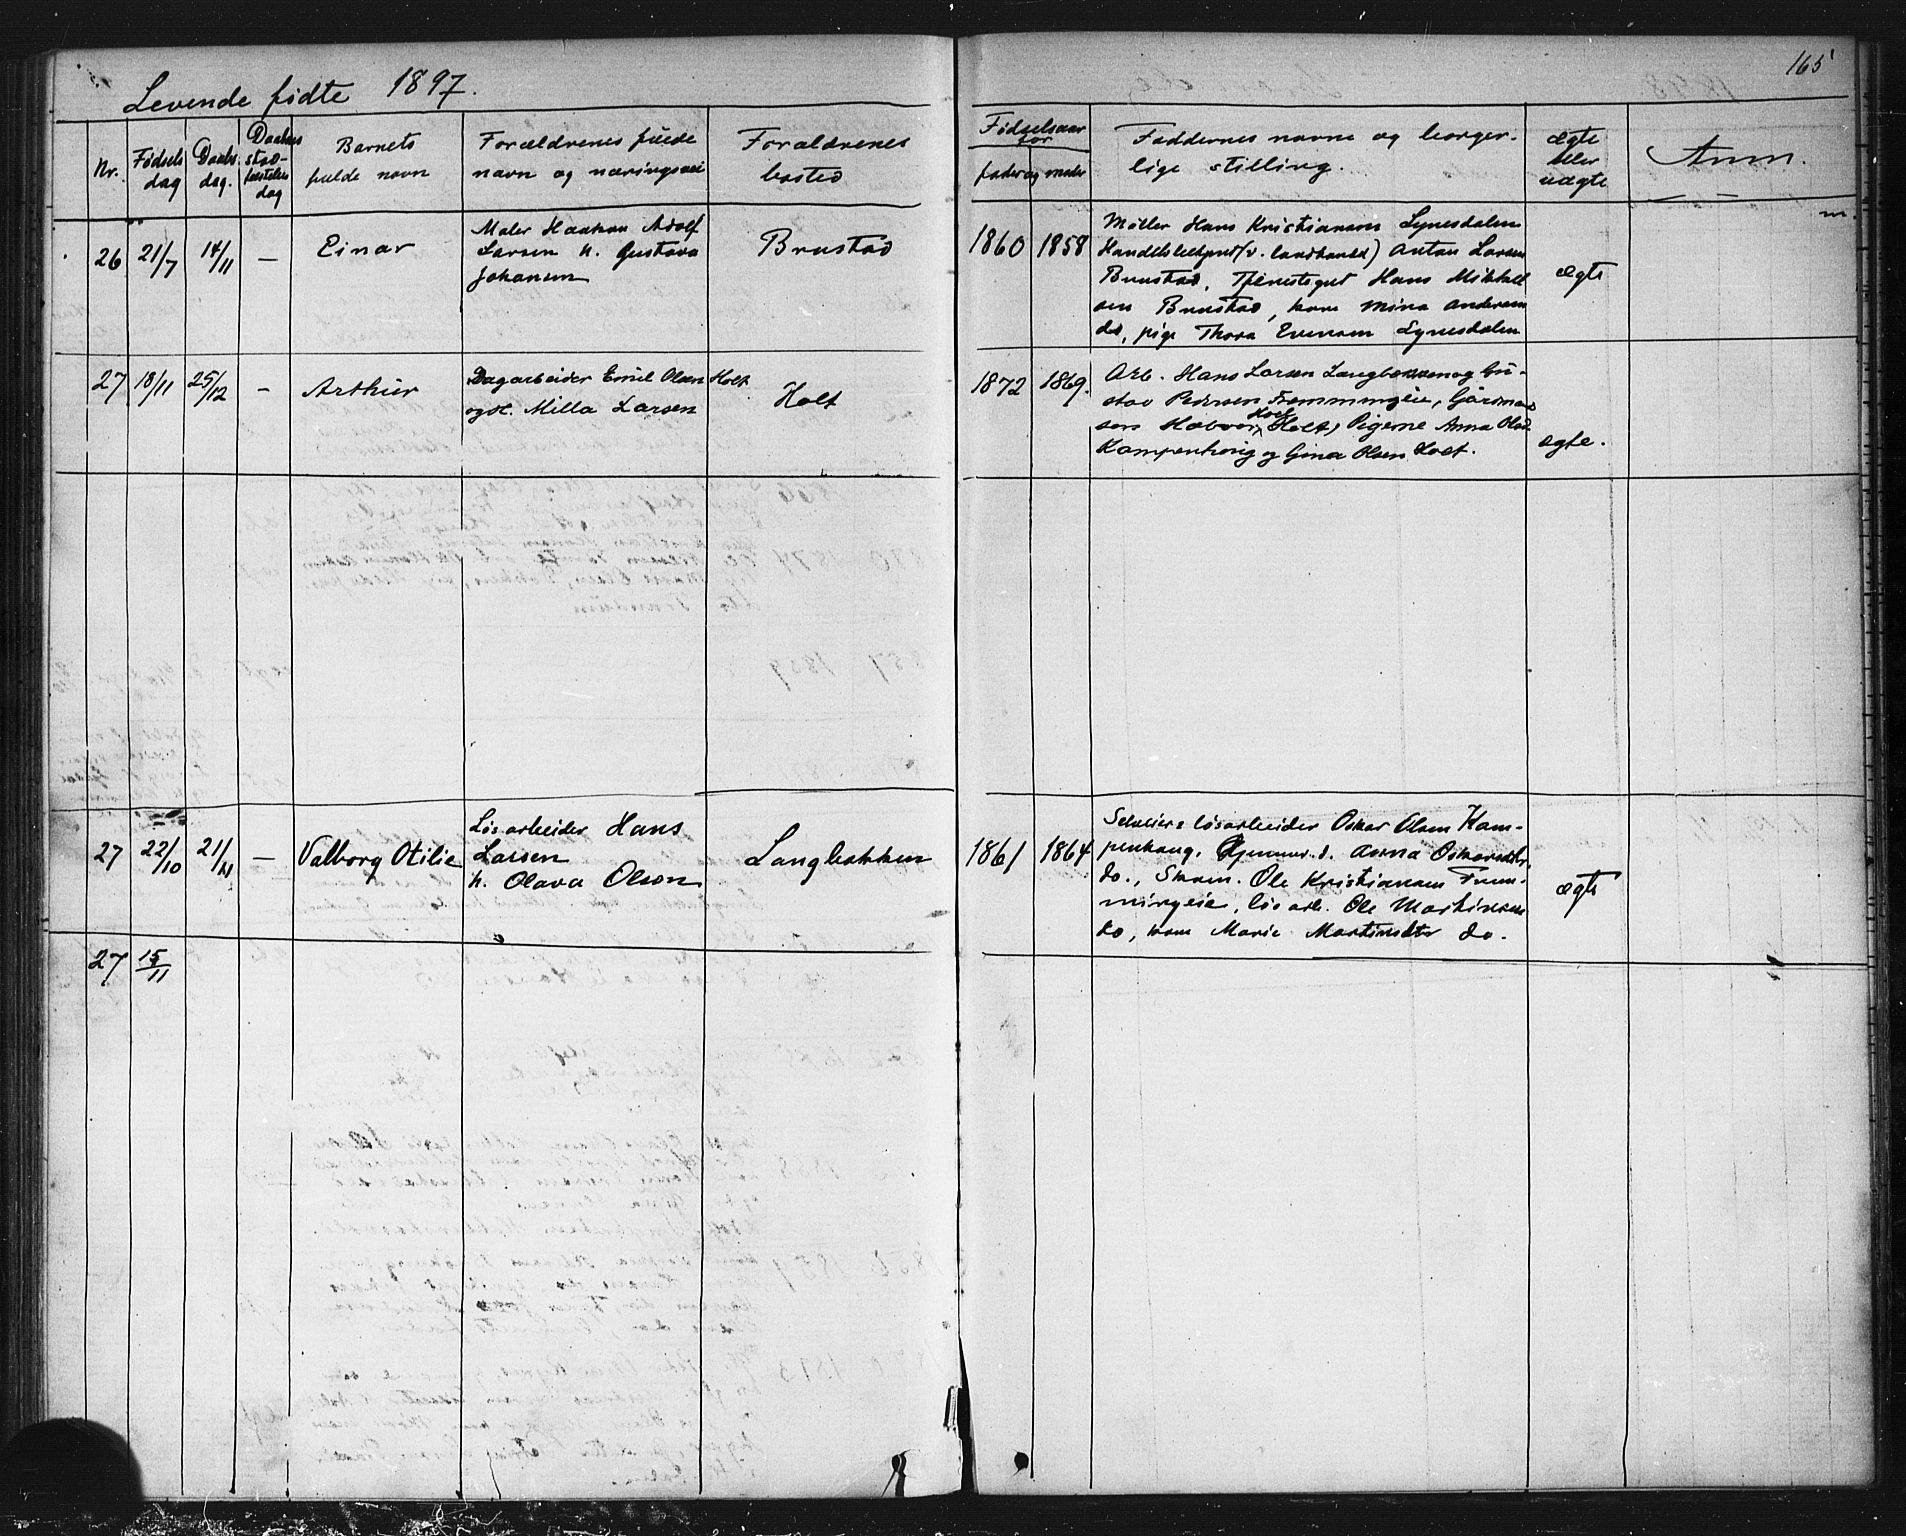 165
Levende fødte 1897.
Nr.
Fødsels
dag
Daabs
dag.
Daabens
stad-
fæstelses
dag
Barnets
fulde navn
Forældrenes fulde
navn og næringsvei
Forældrenes
bosted
Fødselsaar
for
fader og moder
Faddernes navne og borger-
lige stilling.
ægte
eller
uægte
Anm.
26 21/7 14/11 — Einar
Maler Haakon Adolf
Larsen h. Gustava
Johansen
Brustad
1860 1858
Møller Hans Kristiansen Lynesdalen
Handelsbetjent (v. landhandel) Anton Larsen
Brustad, Tjenestegut Hans Mikkel
sen Brustad, kone Mina Andersen
do, pige Thora Evensen Lynesdalen
ægte
27 18/11 25/12 — Arthur
Dagarbeider Emil Olsen Holt
og h. Milla Larsen
Holt
1872 1869.
Arb. Hans Larsen Langbakken og Gu-
stav Pedersen Fremmingeie, Gaardma
Holt, Pigerne Anna Ols.
Kampenhaug og Gina Olsen Holt.
ægte.
27 22/10 21/11 — Valborg Otilie
Løsarbeider Hans
Larsen
h. Olava Olsen
Langbakken
1861 1864
Selveier & løsarbeider Oskar Olsen Kam-
penhaug, Anna Oskarsdtr,
do., Skom. Ole Kristiansen Frem-
mingeie, løsarb. Ole Martinsen
do, kone Marie Martinsdtr do.
ægte
27 15/11